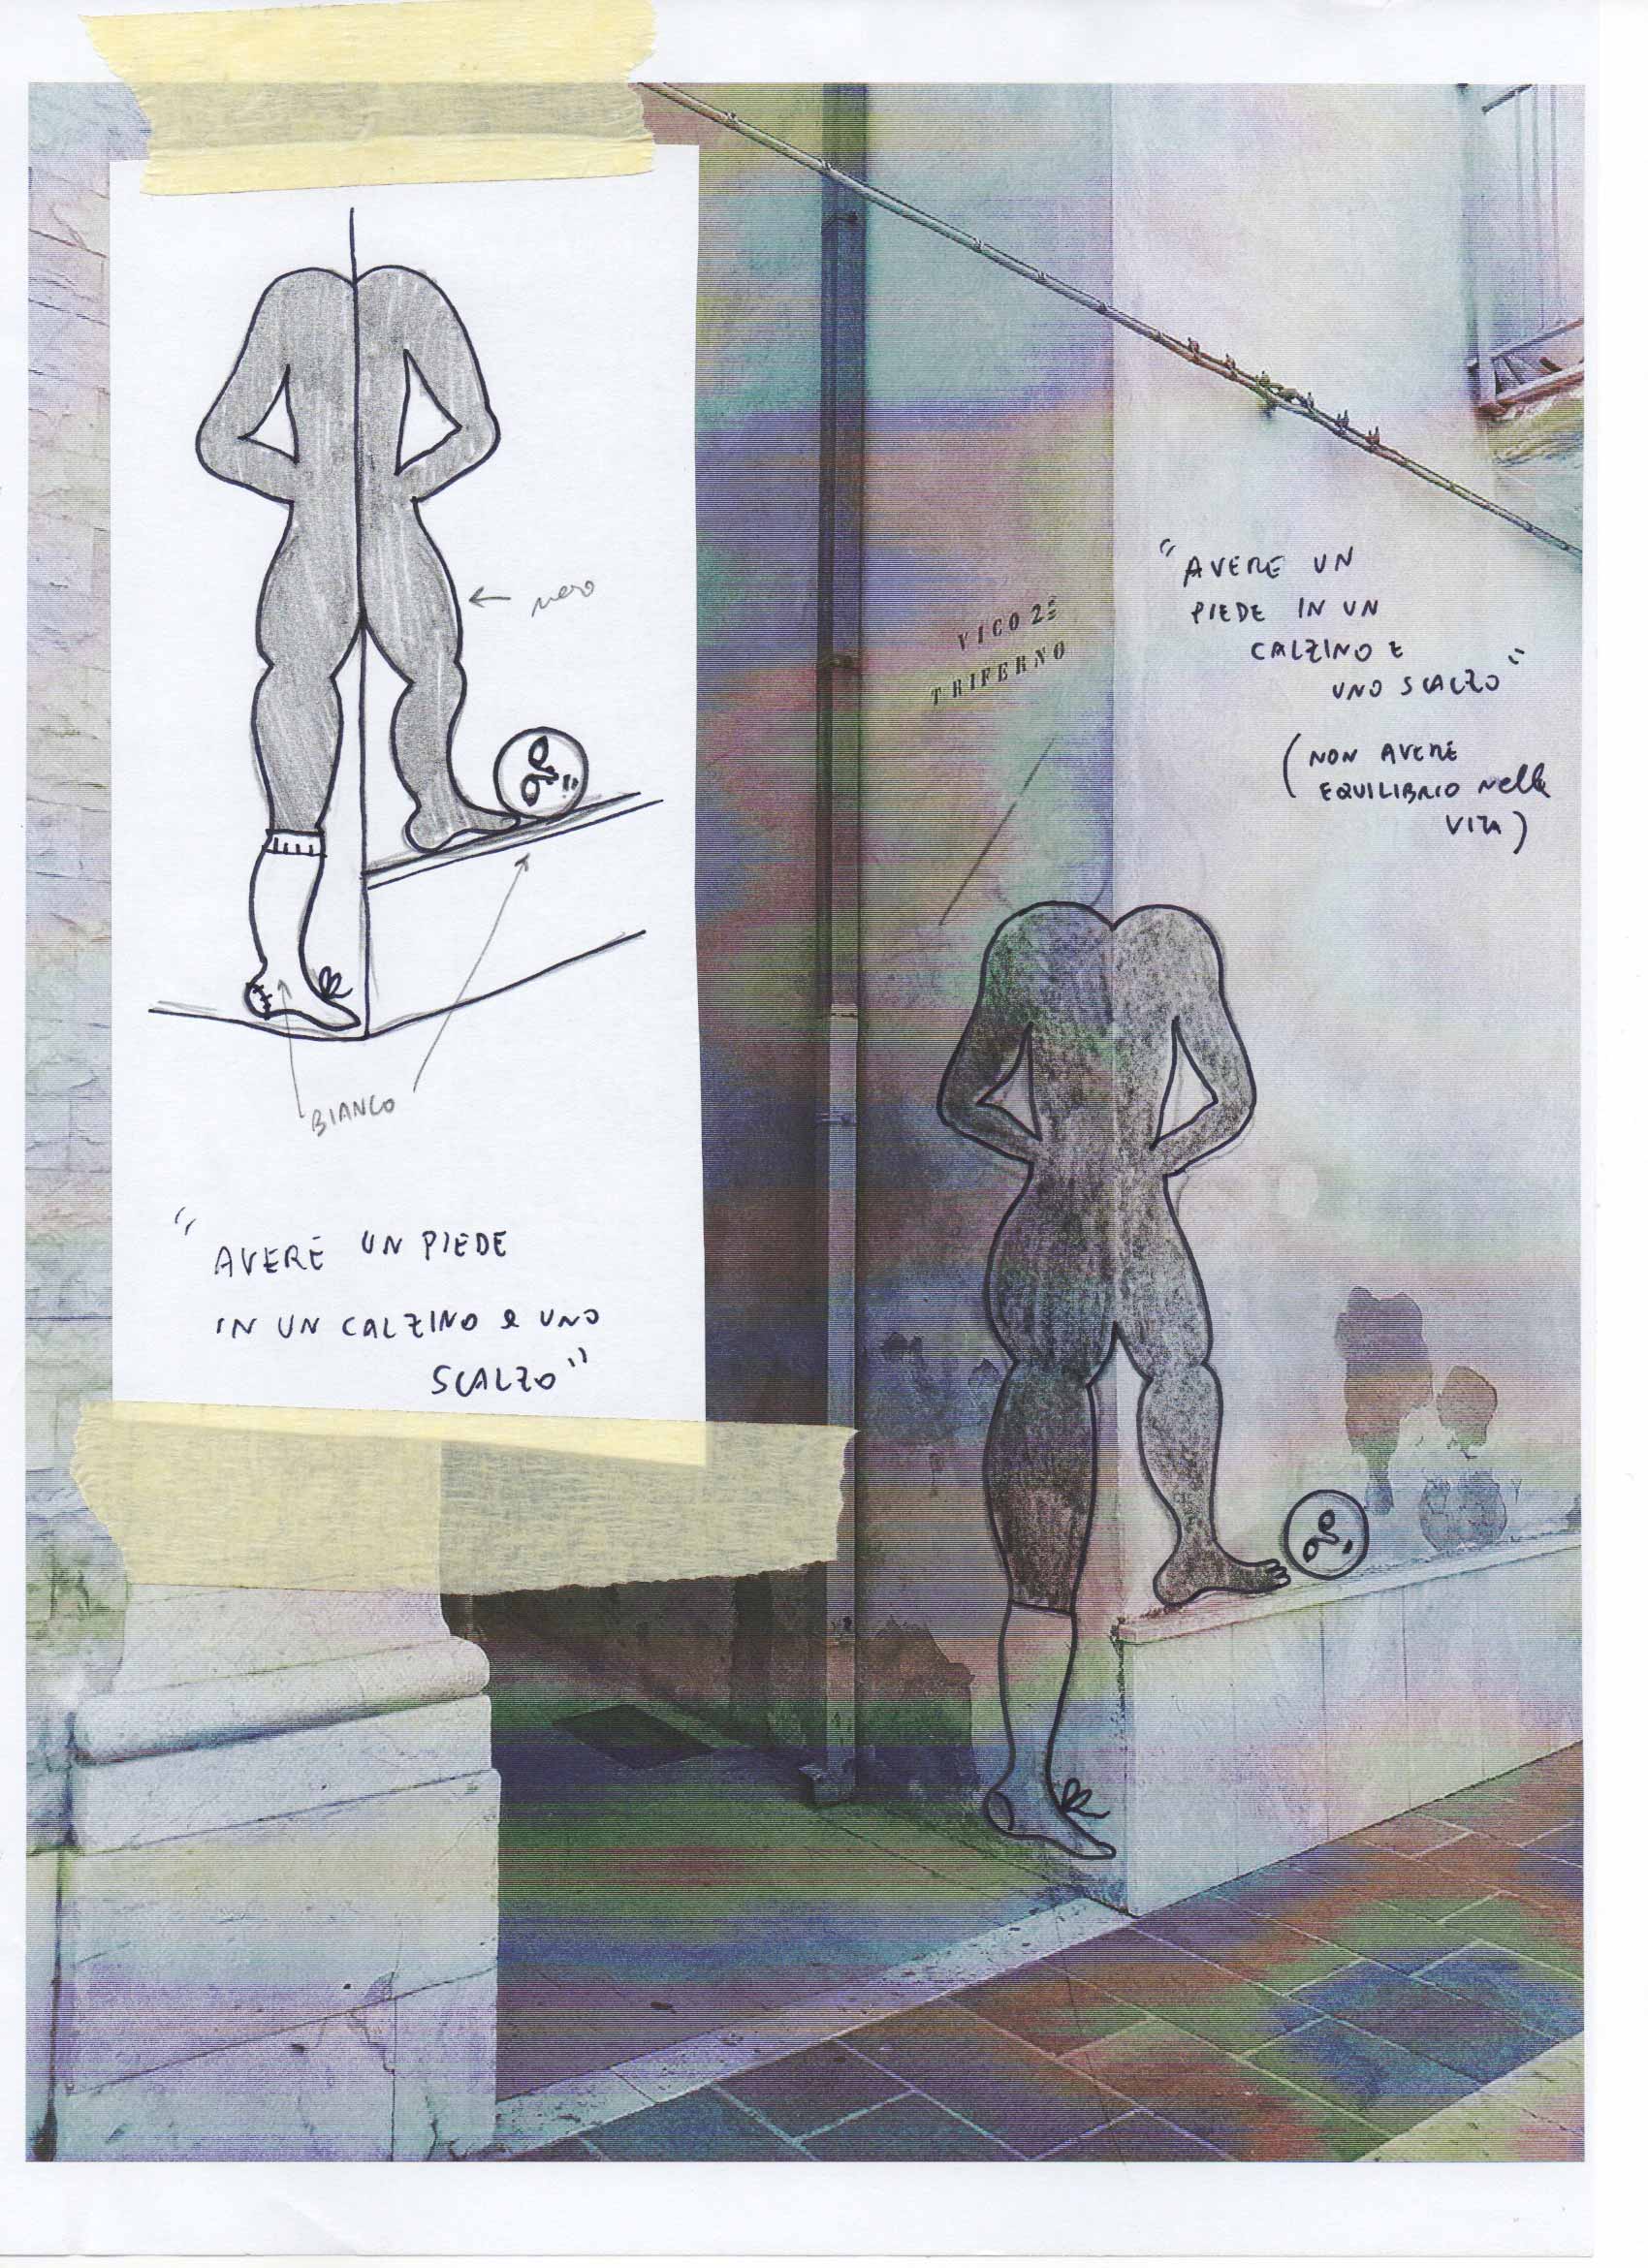 nero
BIANCO
“AVERE UN PIEDE
IN UN CALZINO e UNO
SCALZO”
VICO 2º
TRIFERNO
“AVERE UN
PIEDE IN UN
CALZINO E
UNO SCALZO”
(NON AVERE
EQUILIBRIO Nella
VITA)